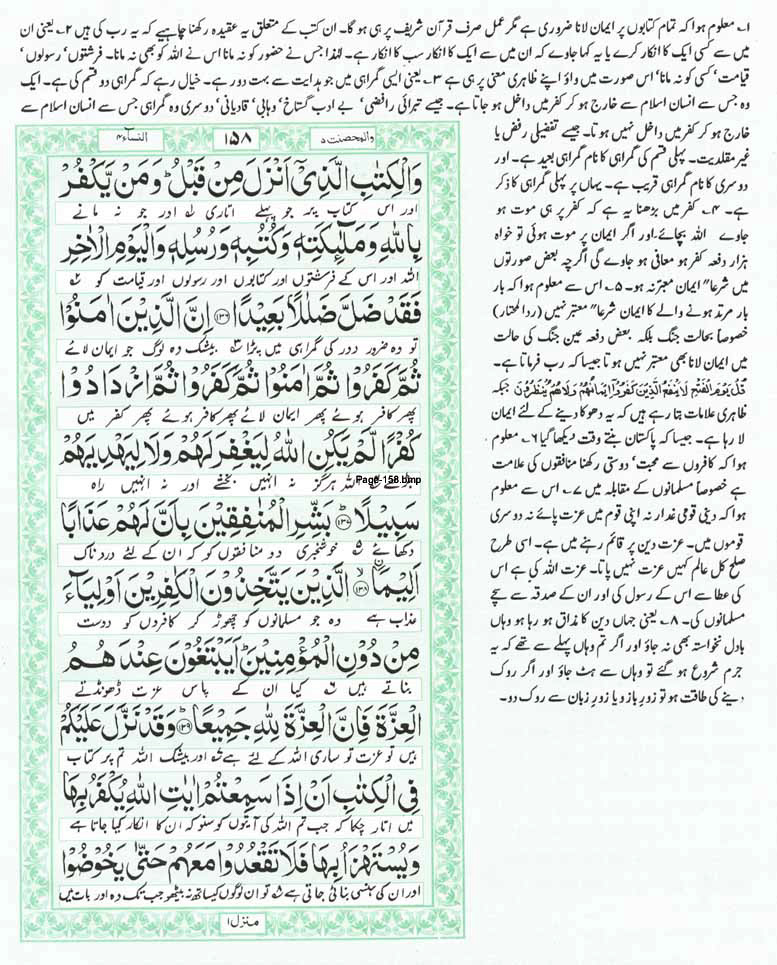 ۱۔ معلوم ہوا کہ تمام کتابوں پر ایمان لانا ضروری ہے مگر عمل صرف قرآن شریف پر ہی ہو گا۔ ان کتب کے متعلق یہ عقیدہ رکھنا چاہیے کہ یہ رب کی ہیں ۲۔ یعنی ان
میں سے کسی ایک کا انکار کرے یا یہ کہا جاوے کہ ان میں سے ایک کا انکار سب کا انکار ہے۔ لہٰذا جس نے حضور کو نہ مانا اس نے اللہ کو بھی نہ مانا۔ فرشتوں' رسولوں'
قیامت' کسی کو نہ مانا' اس صورت میں واؤ اپنے ظاہری معنی پر ہی ہے ۳۔ یعنی ایسی گمراہی میں جو ہدایت سے بہت دور ہے۔ خیال رہے کہ گمراہی دو قسم کی ہے۔ ایک
وہ جس سے انسان اسلام سے خارج ہو کر کفر میں داخل ہو جاتا ہے۔ جیسے تبرائی رافضی' بے ادب گستاخ' وہابی' قادیانی' دوسری وہ گمراہی جس سے انسان اسلام سے
خارج ہو کر کفر میں داخل نہیں ہوتا۔ جیسے تفضیلی رفض یا
غیر مقلدیت۔ پہلی قسم کی گمراہی کا نام گمراہی بعید ہے۔ اور
دوسری کا نام گمراہی قریب ہے۔ یہاں پر پہلی گمراہی کا ذکر
ہے۔ ۴۔ کفر میں بڑھنا یہ ہے کہ کفر پر ہی موت ہو
جاوے اللہ بچائے۔ اور اگر ایمان پر موت ہوئی تو خواہ
ہزار دفعہ کفر ہو معافی ہو جاوے گی اگرچہ بعض صورتوں
میں شرعا" ایمان معتبر نہ ہو۔ ۵۔ اس سے معلوم ہوا کہ بار
بار مرتد ہونے والے کا ایمان شرعا" معتبر نہیں (ردالمحتار)
خصوصاً بحالت جنگ بلکہ بعض دفعہ عین جنگ کی حالت
میں ایمان لانا بھی معتبر نہیں ہوتا جیسا کہ رب فرماتا ہے۔
قُلْ يَوْمَ الْفَتْحِ لَا يَنْفَعُ الَّذِيْنَ كَفَرُوْٓا اِيْمَانُهُمْ وَلَا هُمْ يُنْظَرُوْنَ جبکہ
ظاہری علامات بتا رہے ہیں کہ یہ دھوکا دینے کے لئے ایمان
لا رہا ہے۔ جیسا کہ پاکستان بنتے وقت دیکھا گیا ۶۔ معلوم
ہوا کہ کافروں سے محبت' دوستی رکھنا منافقوں کی علامت
ہے خصوصاً مسلمانوں کے مقابلہ میں ۷۔ اس سے معلوم
ہوا کہ دینی قومی غدار نہ اپنی قوم میں عزت پائے نہ دوسری
قوموں میں۔ عزت دین پر قائم رہنے میں ہے۔ اسی طرح
صلح کل عالم کہیں عزت نہیں پاتا۔ عزت اللہ کی ہے اس
کی عطا سے اس کے رسول کی اور ان کے صدقہ سے سچے
مسلمانوں کی۔ ۸۔ یعنی جہاں دین کا مذاق ہو رہا ہو وہاں
بادل نخواستہ بھی نہ جاؤ اور اگر تم وہاں پہلے سے تھے کہ یہ
جرم شروع ہو گئے تو وہاں سے ہٹ جاؤ اور اگر روک
دینے کی طاقت ہو تو زور بازو یا زور زبان سے روک دو۔
والمحصنت ۵
۱۵۸
النساء ۴
وَالْكِتٰبِ الَّذِيْٓ اَنْزَلَ مِنْ قَبْلُ ؕ وَمَنْ يَّكْفُرْ
اور اس کتاب پر جو پہلے اتاری ۱ اور جو نہ مانے
بِاللّٰهِ وَمَلٰٓئِكَتِهٖ وَكُتُبِهٖ وَرُسُلِهٖ وَالْيَوْمِ الْاٰخِرِ
اللہ اور اس کے فرشتوں اور کتابوں اور رسولوں اور قیامت کو ۲
فَقَدْ ضَلَّ ضَلٰلًا بَعِيْدًا ﴿۱۳۶﴾ اِنَّ الَّذِيْنَ اٰمَنُوْا
تو وہ ضرور دور کی گمراہی میں پڑا ۳ بیشک وہ لوگ جو ایمان لائے
ثُمَّ كَفَرُوْا ثُمَّ اٰمَنُوْا ثُمَّ كَفَرُوْا ثُمَّ ازْدَادُوْا
پھر کافر ہوئے پھر ایمان لائے پھر کافر ہوئے پھر کفر میں
كُفْرًا لَّمْ يَكُنِ اللّٰهُ لِيَغْفِرَ لَهُمْ وَلَا لِيَهْدِيَهُمْ
اللہ ہرگز نہ انہیں بخشے اور نہ انہیں راہ
Page-158.bmp
سَبِيْلًا ﴿۱۳۷﴾ بَشِّرِ الْمُنٰفِقِيْنَ بِاَنَّ لَهُمْ عَذَابًا
دکھائے ۵ خوشخبری دو منافقوں کو کہ ان کے لئے دردناک
اَلِيْمًا ﴿۱۳۸﴾ الَّذِيْنَ يَتَّخِذُوْنَ الْكٰفِرِيْنَ اَوْلِيَآءَ
عذاب ہے وہ جو مسلمانوں کو چھوڑ کر کافروں کو دوست
مِنْ دُوْنِ الْمُؤْمِنِيْنَ ؕ اَيَبْتَغُوْنَ عِنْدَهُمُ
بناتے ہیں ۶ کیا ان کے پاس عزت ڈھونڈتے
الْعِزَّةَ فَاِنَّ الْعِزَّةَ لِلّٰهِ جَمِيْعًا ﴿۱۳۹﴾ وَقَدْ نَزَّلَ عَلَيْكُمْ
ہیں تو عزت تو ساری اللہ کے لئے ہے ۷ اور بیشک اللہ تم پر کتاب
فِي الْكِتٰبِ اَنْ اِذَا سَمِعْتُمْ اٰيٰتِ اللّٰهِ يُكْفَرُ بِهَا
میں اتار چکا کہ جب تم اللہ کی آیتوں کو سنو کہ ان کا انکار کیا جاتا ہے
وَيُسْتَهْزَاُ بِهَا فَلَا تَقْعُدُوْا مَعَهُمْ حَتّٰى يَخُوْضُوْا
اور ان کی ہنسی بنائی جاتی ہے ۸ تو ان لوگوں کیساتھ نہ بیٹھو جب تک وہ اور بات میں
منزل ۱